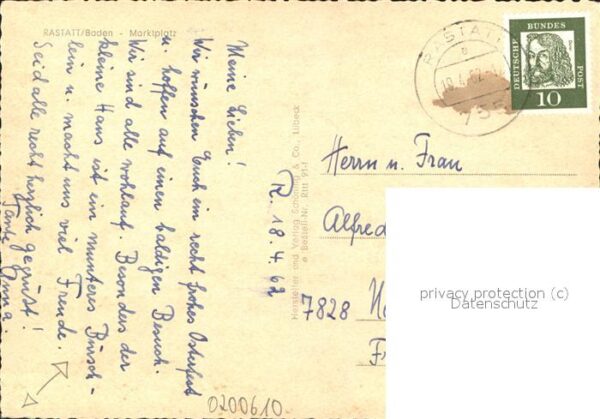 RASTATT/Baden - Marktplatz
Meine Lieben!
Wir wünschen Euch ein recht frohes Osterfest
u. hoffen auf einen baldigen Besuch.
Wir sind alle wohlauf. Besonders der
kleine Hans ist ein munteres Bürsch-
lein u. macht uns viel Freude.
Seid alle recht herzlich gegrüßt!
Tante Anna
R. 18.4.62
Hersteller und Verlag Schöning & Co., Lübeck
RASTATT
DEUTSCHE BUNDESPOST
10
Herrn u. Frau
Alfred
7828
privacy protection (c)
Datenschutz
0200610